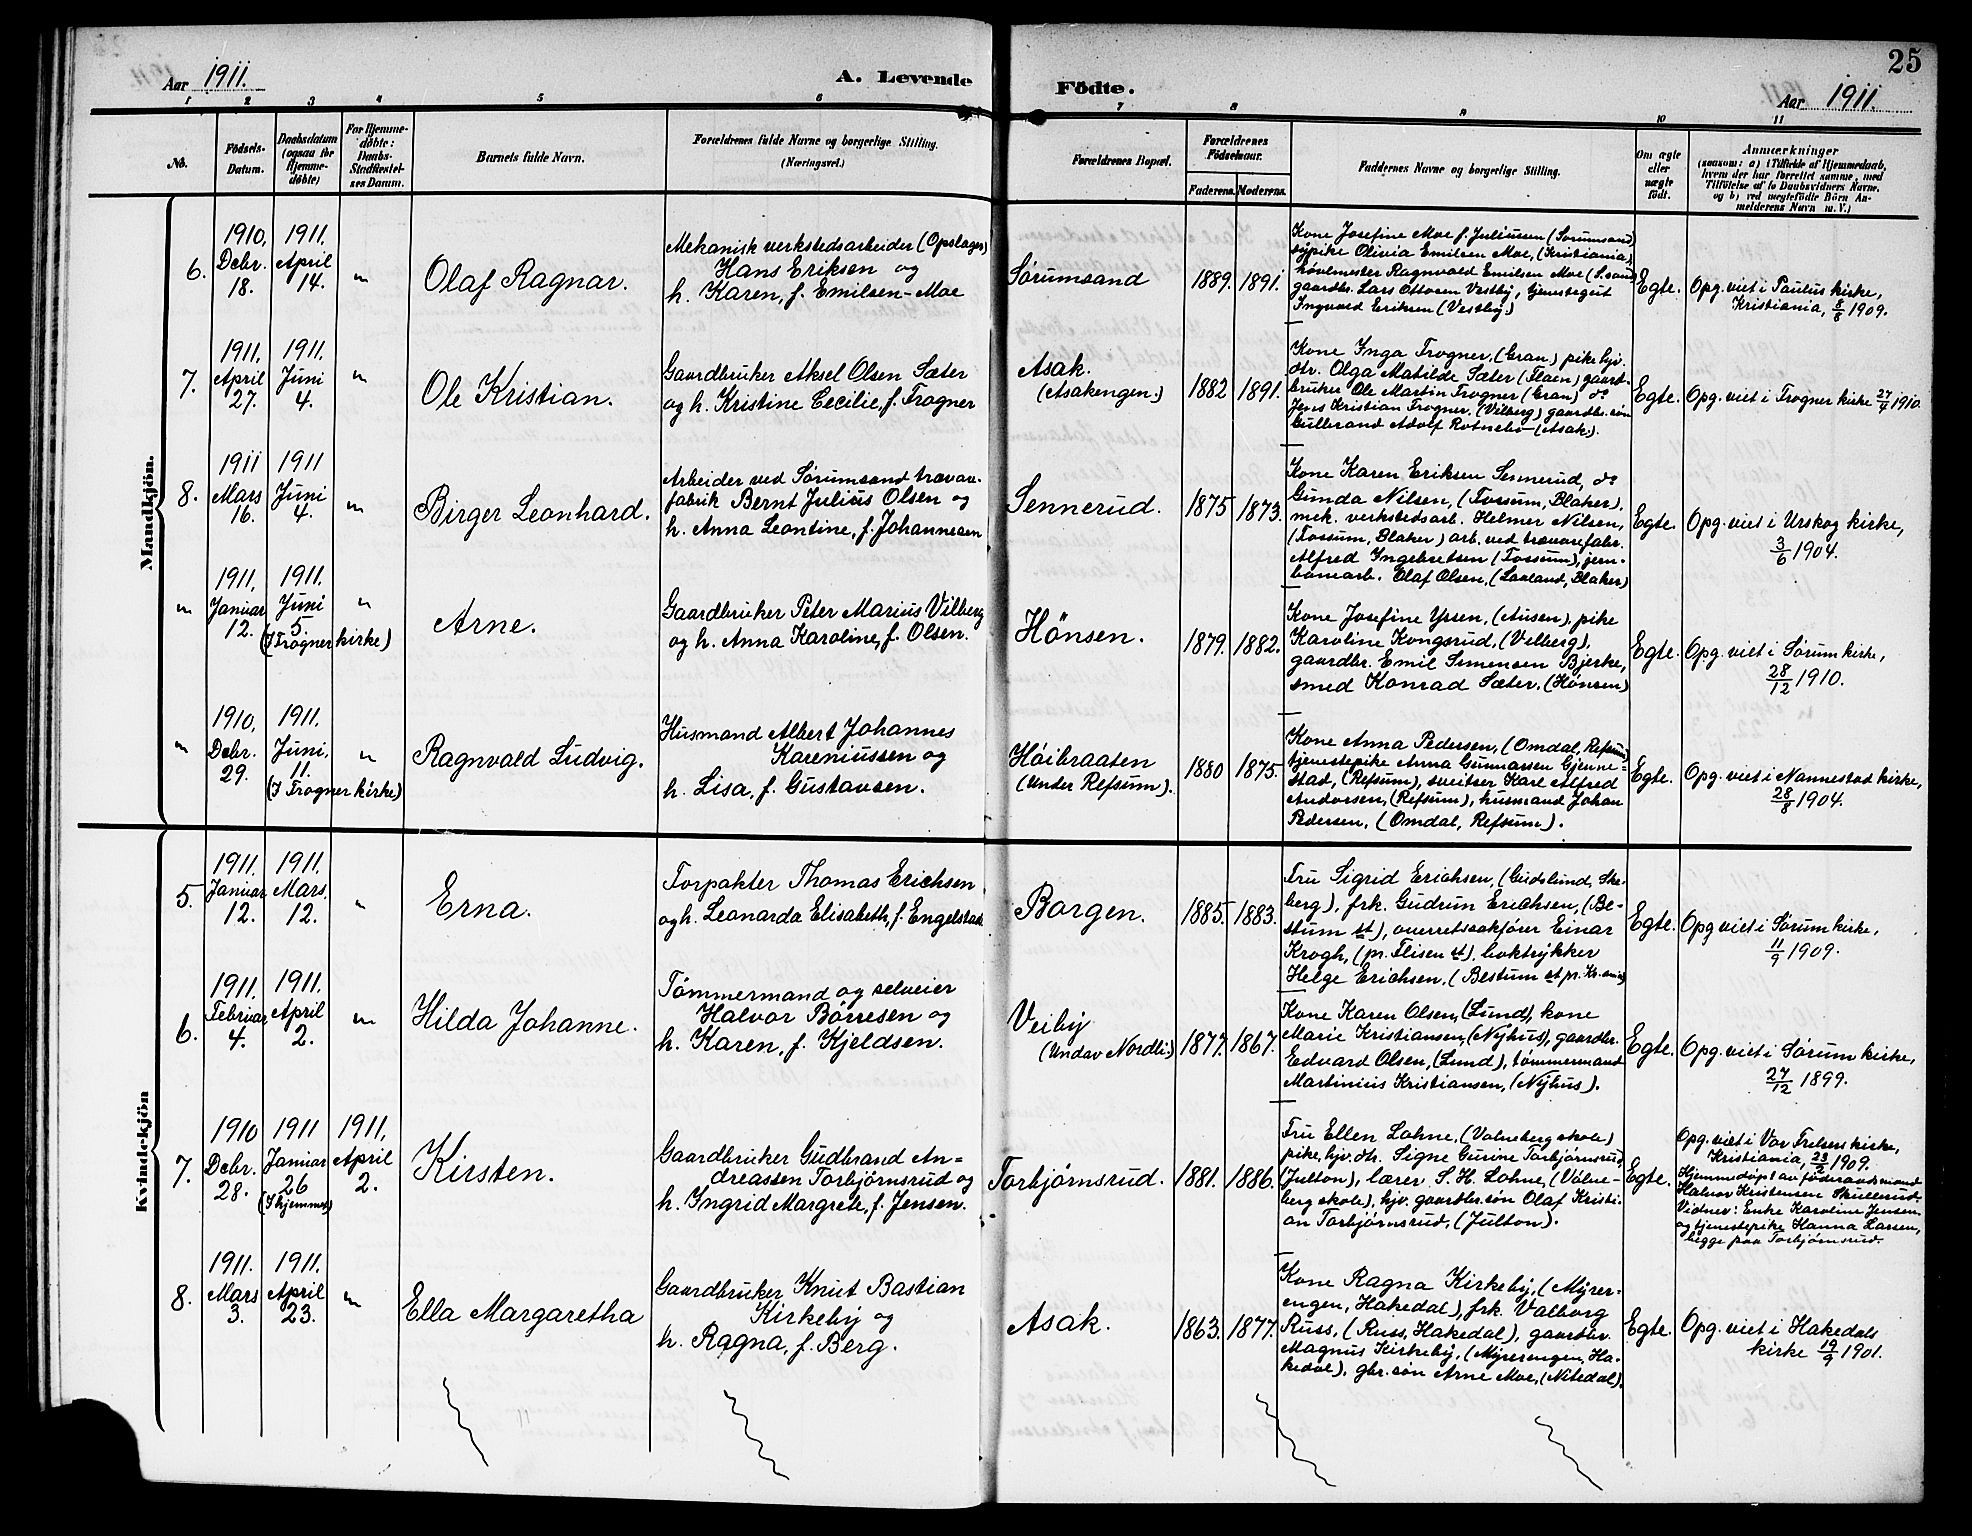 25
Aar 1911.
A. Levende Födte.
Aar 1911.
1 2 3 4 5 6 7 8 9 10 11
No.
Födsels-
Datum.
Daabsdatum
(ogsaa for
Hjemme-
döbte)
For Hjemme-
döbte:
Daabs-
Stadfæstel-
ses Datum.
Barnets fulde Navn.
Forældrenes fulde Navne og borgerlige Stilling.
(Næringsvei.)
Forældrenes Bopæl.
Forældrenes
Födselsaar.
Faderens. Moderens.
Faddernes Navne og borgerlige Stilling.
Om ægte
eller
uægte
født.
Anmærkninger
(saasom: a) i Tilfælde af Hjemmedaab,
hvem der har forrettet samme, med
Tilföielse af to Daabsvidners Navne,
og b) ved uægtefödte Börn An-
melderens Navn m. V.)
Mandkjön.
6.
1910,
Decbr.
18.
1911.
April
14.
"
Olaf Ragnar.
Mekanisk verkstedsarbeider (Opslager)
Hans Eriksen og
h. Karen, f. Emilsen-Moe
Sørumsand
1889. 1891.
Kone Josefine Moe f. Juliussen (Sørumsand,
sypike Olivia Emilsen Moe, (Kristiania),
høvlmester Ragnvald Emilsen Moe (S.sand)
gaardbr. Lars Ottosen Vestby, tjenstegut
Ingvald Eriksen (Vestby).
Egte.
Opg. viet i Paulus kirke,
Kristiania, 8/8 1909.
7.
1911.
April
27.
1911.
Juni
4.
"
Ole Kristian.
Gaardbruker Aksel Olsen Sæter
og h. Kristine Cecilie, f. Trogner
Asak.
(Asakengen.)
1882 1891.
Kone Inga Trogner, (Gran) pike hjv.
dtr. Olga Matilde Sæter (Flaen) gaard-
bruker Ole Martin Trogner (Gran) do
Jens Kristian Trogner. (Vilberg) gaardbr. søn
Gulbrand Adolf Rotnebo (Asak).
Egte.
Opg. viet i Trogner kirke 27/4 1910.
8.
1911
Mars
16.
1911
Juni
4.
"
Birger Leonhard.
Arbeider ved Sørumsand trævare-
fabrik Bernt Julius Olsen og
h. Anna Leontine, f. Johannesen
Sennerud.
1875 1873.
Kone Karen Eriksen Sennerud, do
Gunda Nilsen, (Fossum, Blaker).
mek. verkstedsarb. Helmer Nilsen,
(Fossum, Blaker) arb. ved trævarefabr.
Alfred Ingebretsen (Fossum), jern-
banearb. Olaf Olsen, (Laaland, Blaker)
Egte.
Opg. viet i Urskog kirke,
3/6 1904.
"
1911,
Januar
12.
1911.
Juni
5
(I Trogner kirke)
"
Arne.
Gaardbruker Peter Marius Vilberg
og h. Anna Karoline, f. Olsen.
Hønsen.
1879. 1882.
Kone Josefine Yssen, (Ausen), pike
Karoline Kongsrud, (Vilberg),
gaardbr. Emil Simensen Bjerke,
smed Konrad Sæter. (Hønsen)
Egte.
Opg. viet i Sørum kirke,
28/12 1910.
"
1910,
Decbr.
29.
1911.
Juni,
11.
(I Trogner kirke)
"
Ragnvald Ludvig.
Husmand Albert Johannes
Kareniussen og
h. Lisa, f. Gustavsen.
Høibraaten
(Under Refsum).
1880 1875.
Kone Anna Pedersen, (Omdal, Refsum)
tjenestepike Anna Gunnarsen Gjenne-
stad, (Refsum), sveitser Karl Alfred
Andersen, (Refsum), husmand Johan
Pedersen, (Omdal, Refsum).
Egte.
Opg. viet i Nannestad kirke,
28/8 1904.
Kvindekjön
5.
1911.
Januar
12.
1911.
Mars.
12.
"
Erna.
Forpakter Thomas Erichsen
og h. Leonarda Elisabeth, f. Engelstad
Borgen.
1885. 1883.
Fru Sigrid Erichsen, (Gudslund, Ske-
berg), frk. Gudrun Erichsen, (Be-
stum st), overretssakfører Einar
Krogh, (pr. Flisen st), boktrykker
Helge Erichsen, (Bestum st pr. Kr.ania)
Egte.
Opg viet i Sørum kirke,
11/9 1909.
6.
1911.
Februar
4.
1911.
April
2.
"
Hilda Johanne.
Tømmermand og selveier
Halvor Børresen og
h. Karen, f. Kjeldsen.
Veiby
(Undav Nordli)
1877. 1867.
Kone Karen Olsen, (Lund), kone
Marie Kristiansen, (Nyhus), gaardbr.
Edvard Olsen, (Lund), tømmermand
Martinius Kristiansen, (Nyhus).
Egte.
Opg. viet i Sørum kirke,
27/12 1899.
7.
1910
Decbr.
28.
1911
Januar
26
(I hjemmet)
1911,
April
2.
Kirsten.
Gaardbruker Gudbrand An-
dreassen Torbjørnsrud og
h. Ingrid Margrete, f. Jensen.
Torbjørnsrud.
1881. 1886.
Fru Ellen Lohne, (Valneberg skole)
pike, hjv. dtr. Signe Gurine Torbjørnsrud,
(Julton), lærer S. H. Lohne, (Valne-
berg skole), hjv. gaardbr.søn Olaf Kristi-
an Torbjørnsrud, (Julton).
Egte.
Opg. viet i Vor Frelsers kirke,
Kristiania, 23/2 1909.
Hjemmedøpt av føderaadsmand
Halvor Kristensen Skullerud.
Vidner: Enke Karoline Jensen
og tjenestepike Hanna Larsen,
begge paa Torbjørnsrud.
8.
1911.
Mars
3.
1911.
April
23.
"
Ella Margaretha
Gaardbruker Knut Bastian
Kirkeby og
h. Ragna, f. Berg.
Asak.
1863. 1877.
Kone Ragna Kirkeby, (Myrer-
engen, Hakedal), frk. Valborg
Russ, (Russ, Hakedal), gaardbr.
Magnus Kirkeby, (Myrerengen, Ha-
kedal), gbr. søn Arne Moe, (Nitedal).
Egte.
Opg. viet i Hakedals
kirke 19/9 1901.